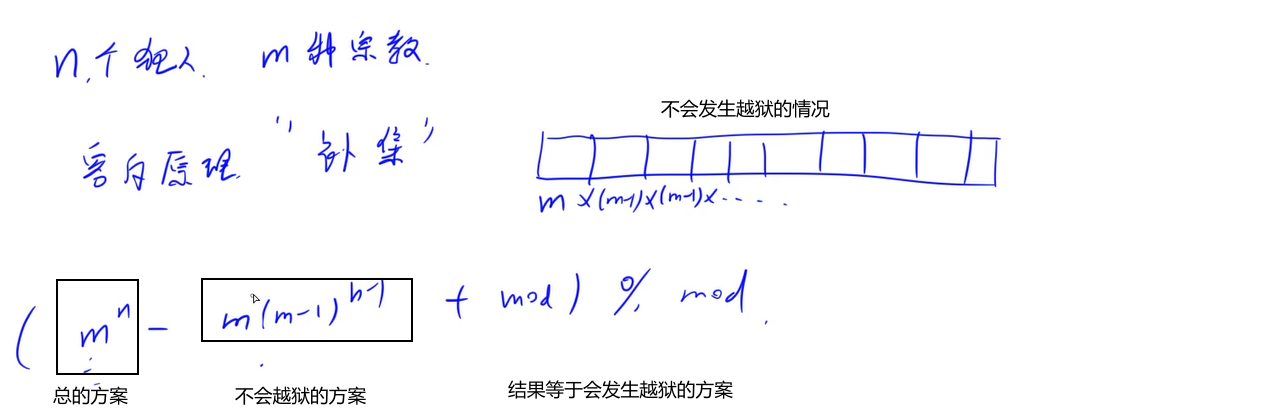 n个犯人 m种宗教.
容斥原理 "补集"
不会发生越狱的情况
m×(m-1)×(m-1)×....
(m^n - m(m-1)^{n-1} + mod) % mod.
总的方案 不会越狱的方案 结果等于会发生越狱的方案